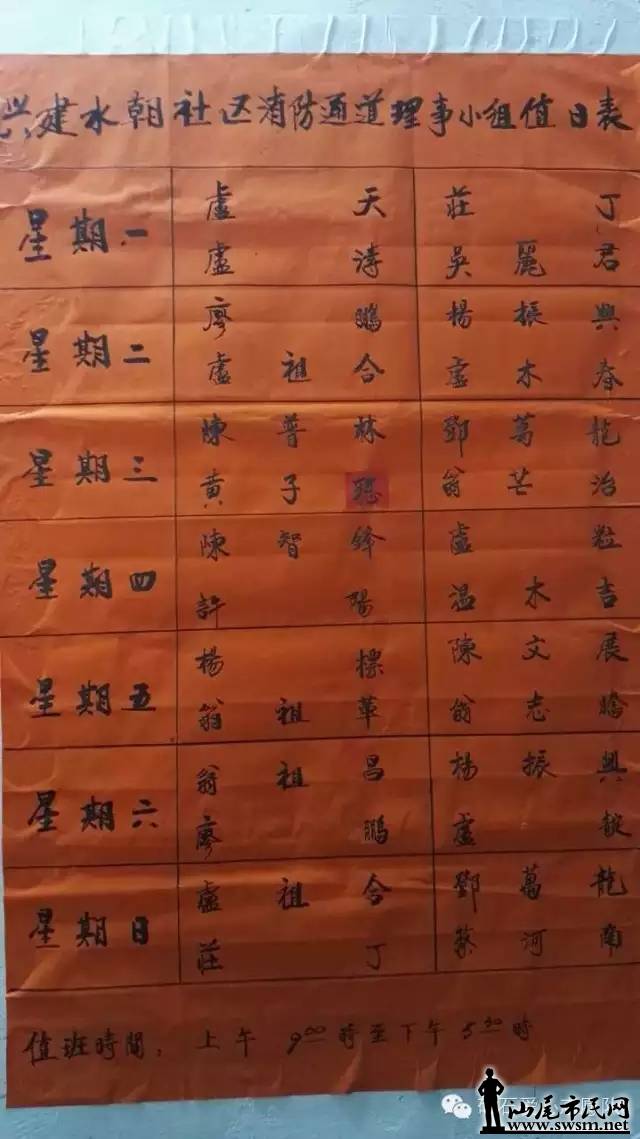 兴建水朝社区消防通道理事小组值日表
星期一 盧天 莊丁
盧涛 吳麗君
星期二 廖鵬 楊振興
盧祖合 盧木春
星期三 陳普林 鄧萬龍
黄子聪 翁芒治
星期四 陳智鋒 盧粒
許陽 温木吉
星期五 楊標 陳文展
翁祖華 翁志
星期六 翁祖昌 楊振興
廖鵬 盧
星期日 盧祖合 鄧萬龍
莊丁 蔡河南
值班時間：上午9.00時至下午5.30時
汕尾市民网
www.swsm.net